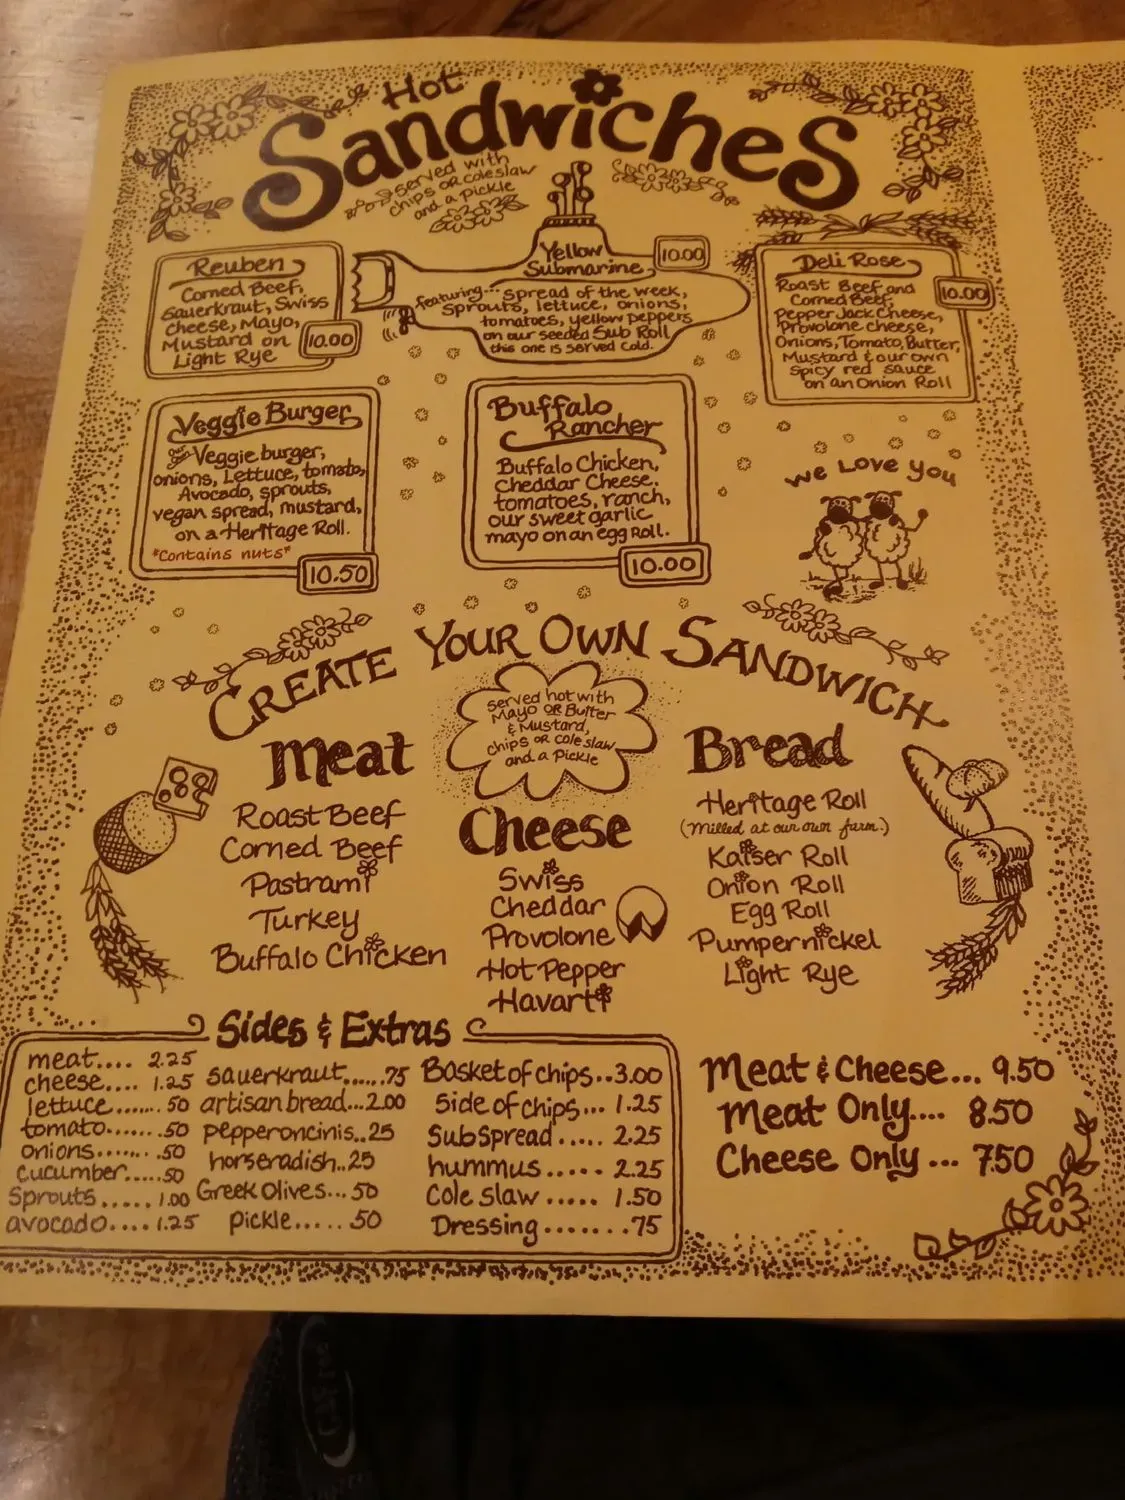 Hot
Sandwiches
served with
chips or coleslaw
and a pickle
Reuben
Corned Beef,
Sauerkraut, Swiss
Cheese, Mayo,
Mustard on
Light Rye
10.00
Yellow
Submarine
10.00
featuring... spread of the week,
sprouts, lettuce, onions,
tomatoes, yellow peppers
on our seeded Sub Roll
this one is served cold.
Deli Rose
10.00
Roast Beef and
Corned Beef,
Pepper Jack Cheese,
Provolone cheese,
Onions, Tomato, Butter,
Mustard & our own
spicy red sauce
on an Onion Roll
Veggie Burger
our own Veggie burger,
onions, Lettuce, tomato,
Avocado, sprouts,
vegan spread, mustard,
on a Heritage Roll.
*Contains nuts*
10.50
Buffalo
Rancher
Buffalo Chicken,
Cheddar Cheese,
tomatoes, ranch,
our sweet garlic
mayo on an egg Roll.
10.00
We Love you
Create Your Own Sandwich
served hot with
Mayo or Butter
& Mustard,
chips or cole slaw
and a pickle
Meat
Roast Beef
Corned Beef
Pastrami
Turkey
Buffalo Chicken
Cheese
Swiss
Cheddar
Provolone
Hot Pepper
Havarti
Bread
Heritage Roll
(Milled at our own farm.)
Kaiser Roll
Onion Roll
Egg Roll
Pumpernickel
Light Rye
Sides & Extras
meat.... 2.25
cheese.... 1.25
lettuce....... .50
tomato....... .50
onions....... .50
cucumber.....50
Sprouts..... 1.00
avocado.... 1.25
sauerkraut......75
artisan bread...2.00
pepperoncinis..25
horseradish..25
Greek Olives...50
pickle..... 50
Basket of chips..3.00
Side of chips... 1.25
Sub Spread..... 2.25
hummus..... 2.25
Cole Slaw..... 1.50
Dressing.......75
Meat & Cheese... 9.50
Meat Only.... 8.50
Cheese Only... 7.50